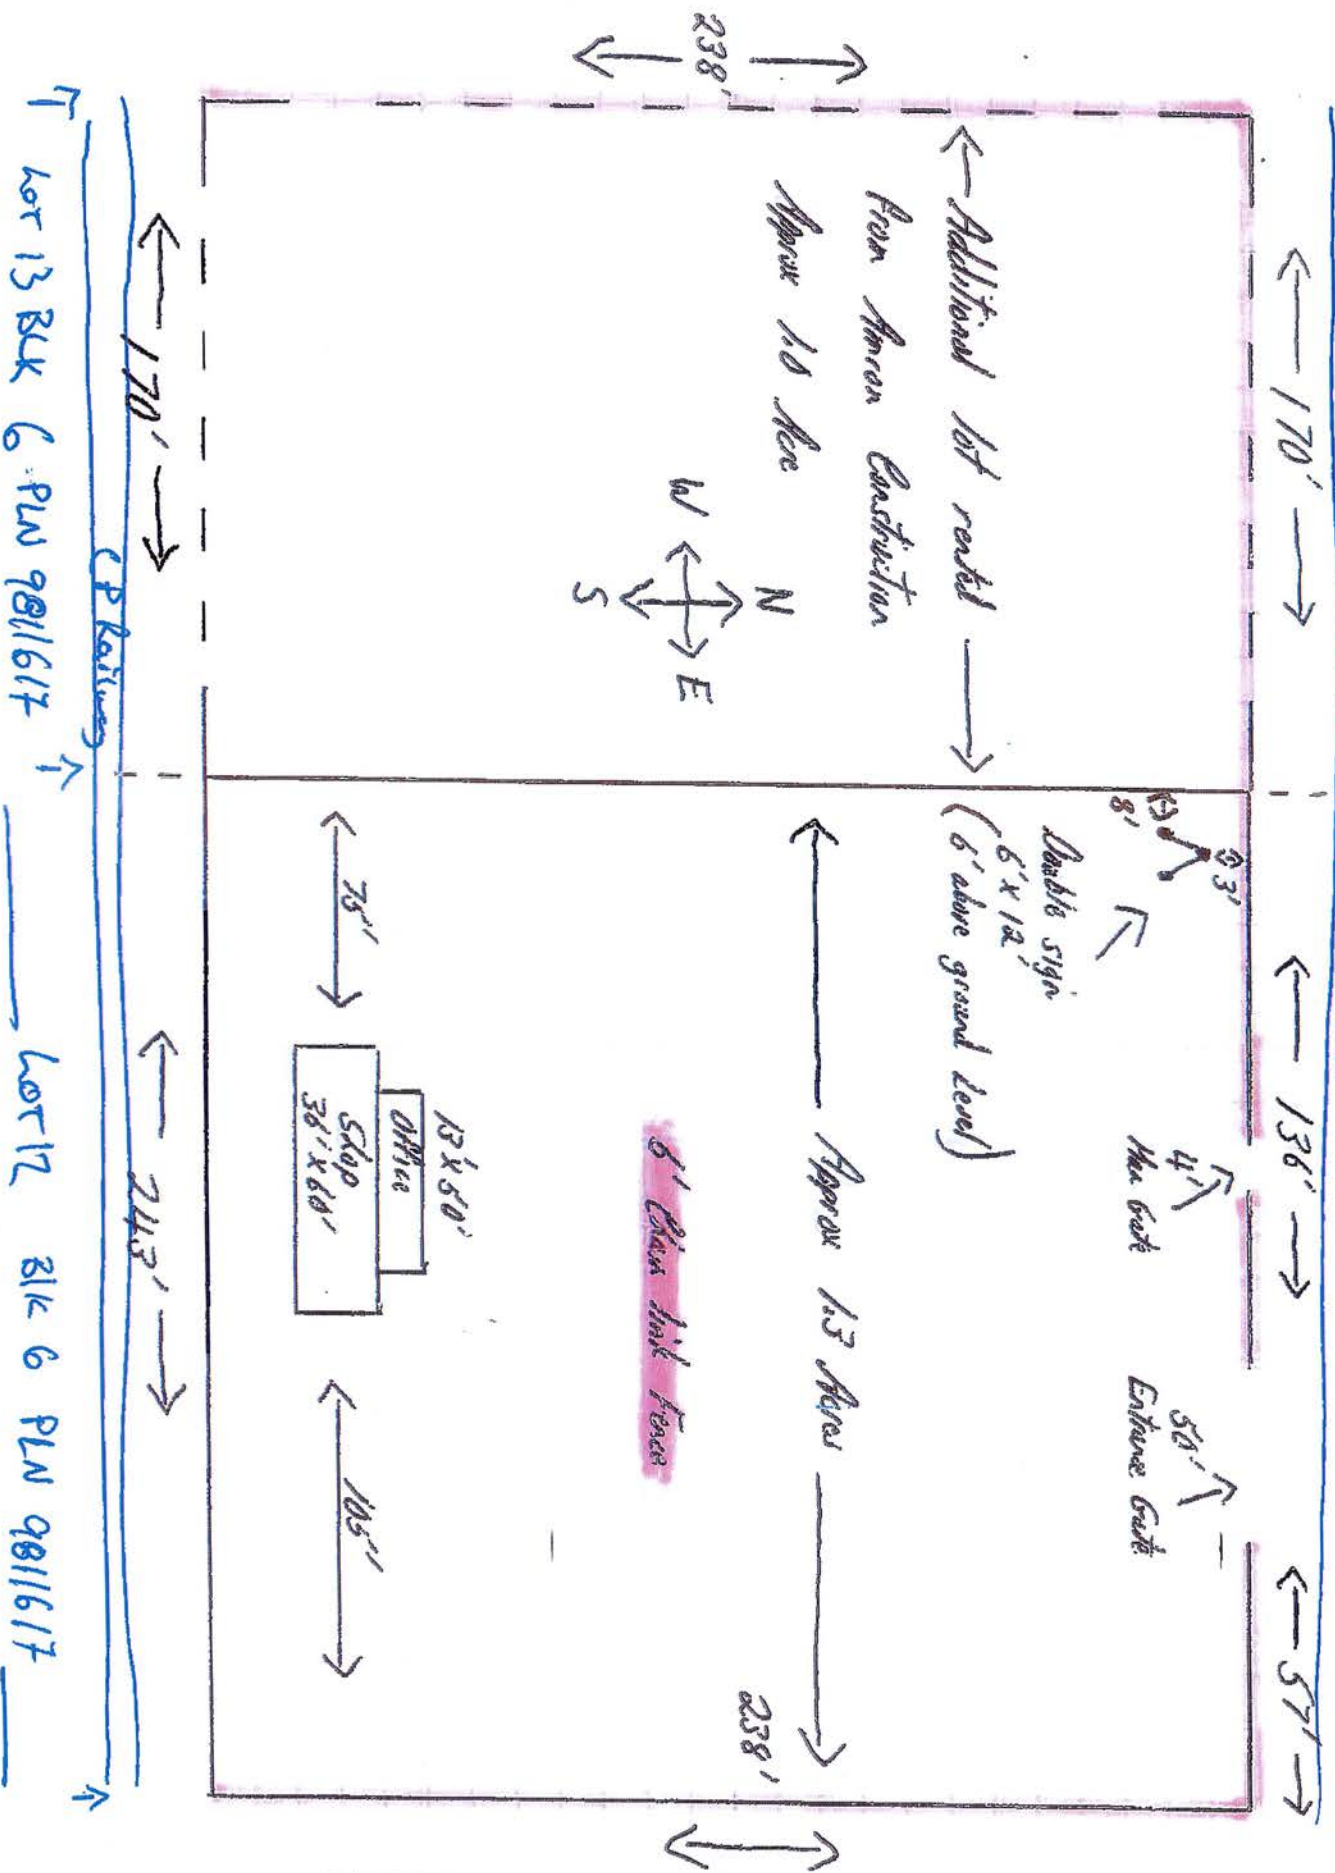 170'
136'
57'
238'
Additional lot rented
From Amron Construction
Approx 1.0 Acre
N
W
E
S
3'
8'
Double sign
6' x 12'
(6' above ground level)
4'
Man Gate
50'
Entrance Gate
Approx 1.3 Acres
238'
6' Chain link Fence
13' x 50'
Office
Shop
36' x 60'
75'
105'
170'
243'
CP Railway
Lot 13 BLK 6 PLN 9811617
Lot 12 Blk 6 PLN 9811617